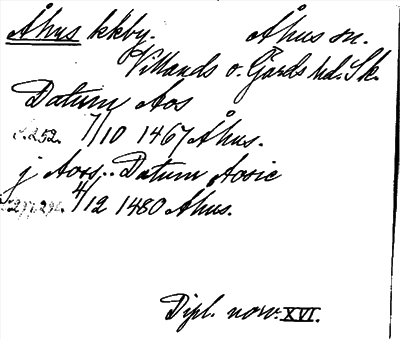 Åhus kkby. Åhus sn.
Villands o. Gärds hd. Sk.
Datum Aos
s. 252. 7/10 1467 Åhus.
j Aoss.. Datum Aosie
4/12 1480 Åhus.
Dipl. norv. XVI.